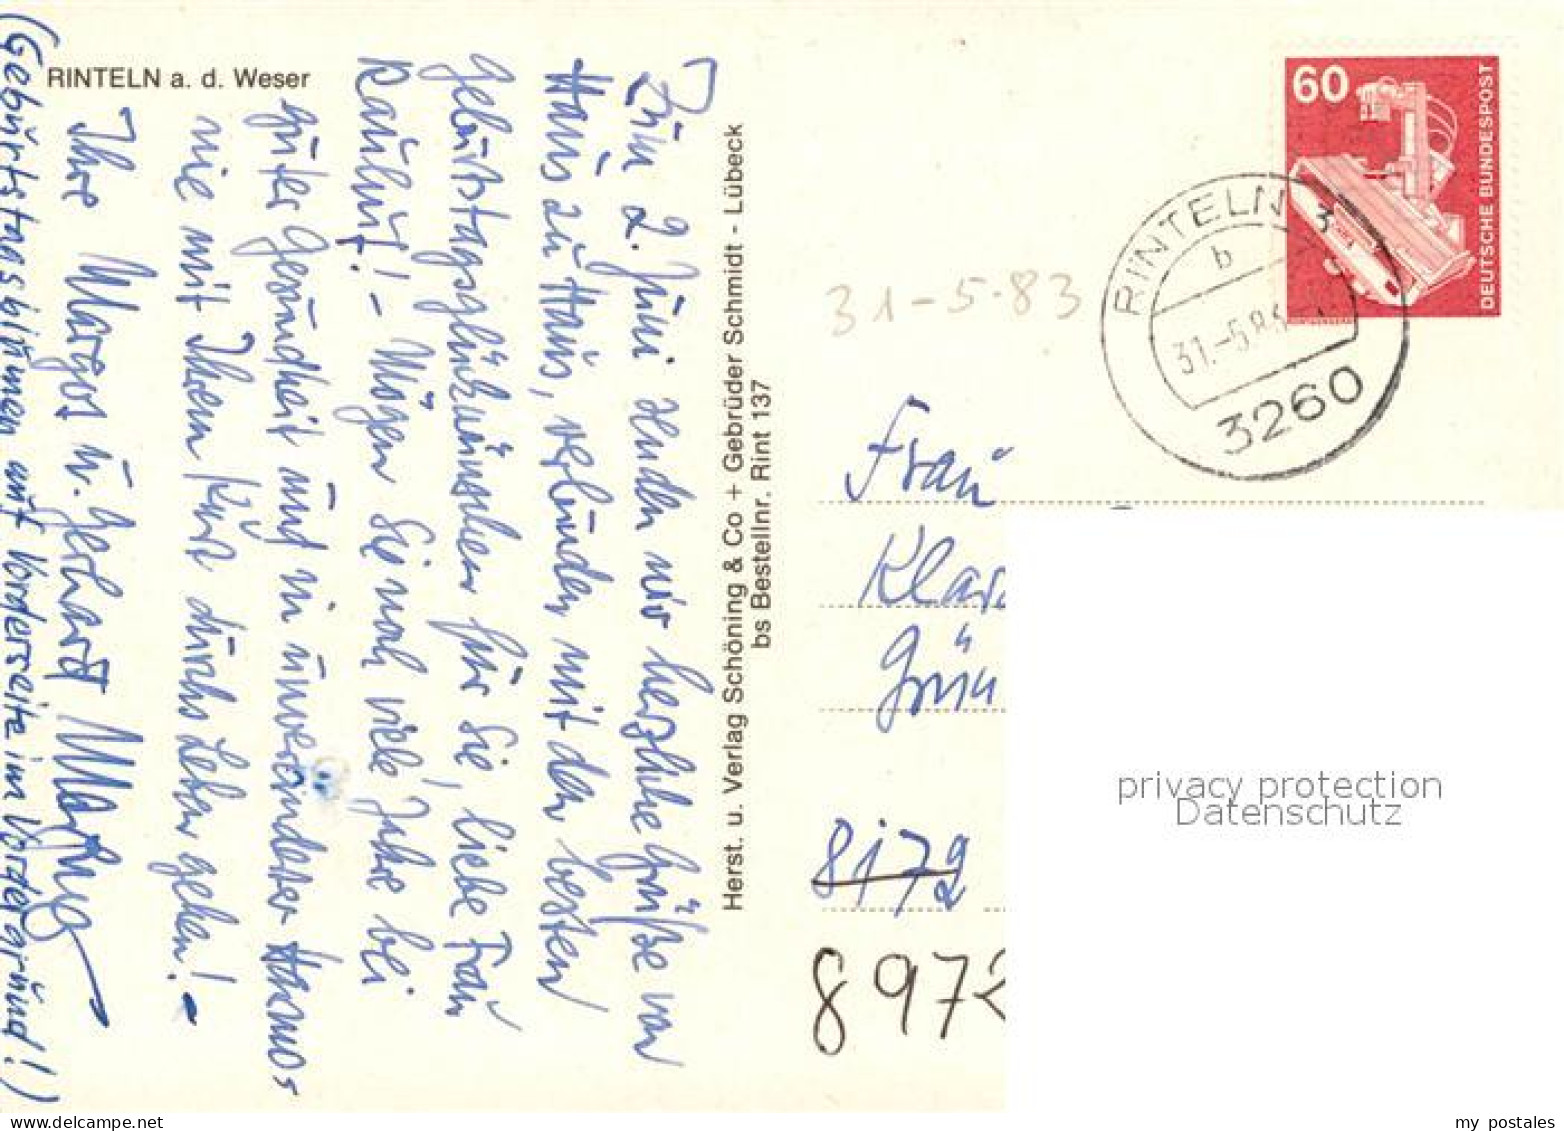 RINTELN a. d. Weser
Zum 2. Juni senden wir herzliche Grüße von
Haus zu Haus, verbunden mit den besten
Geburtstagsglückwünschen für Sie, liebe Frau
Kaulus! - Mögen Sie noch viele Jahre bei
guter Gesundheit und in
nie mit Ihrem Kurt durchs Leben gehen! -
Ihre Margot u. Gerhard
(Geburtstagsblumen auf Vorderseite im Vordergrund!)
Herst. u. Verlag Schöning & Co + Gebrüder Schmidt - Lübeck
bs Bestellnr. Rint 137
60
DEUTSCHE BUNDESPOST
RINTELN 3
b
31.-5.83
3260
31-5-83
Frau
Klar
Grün
8172
8972
privacy protection
Datenschutz
www.delcampe.net
my postales